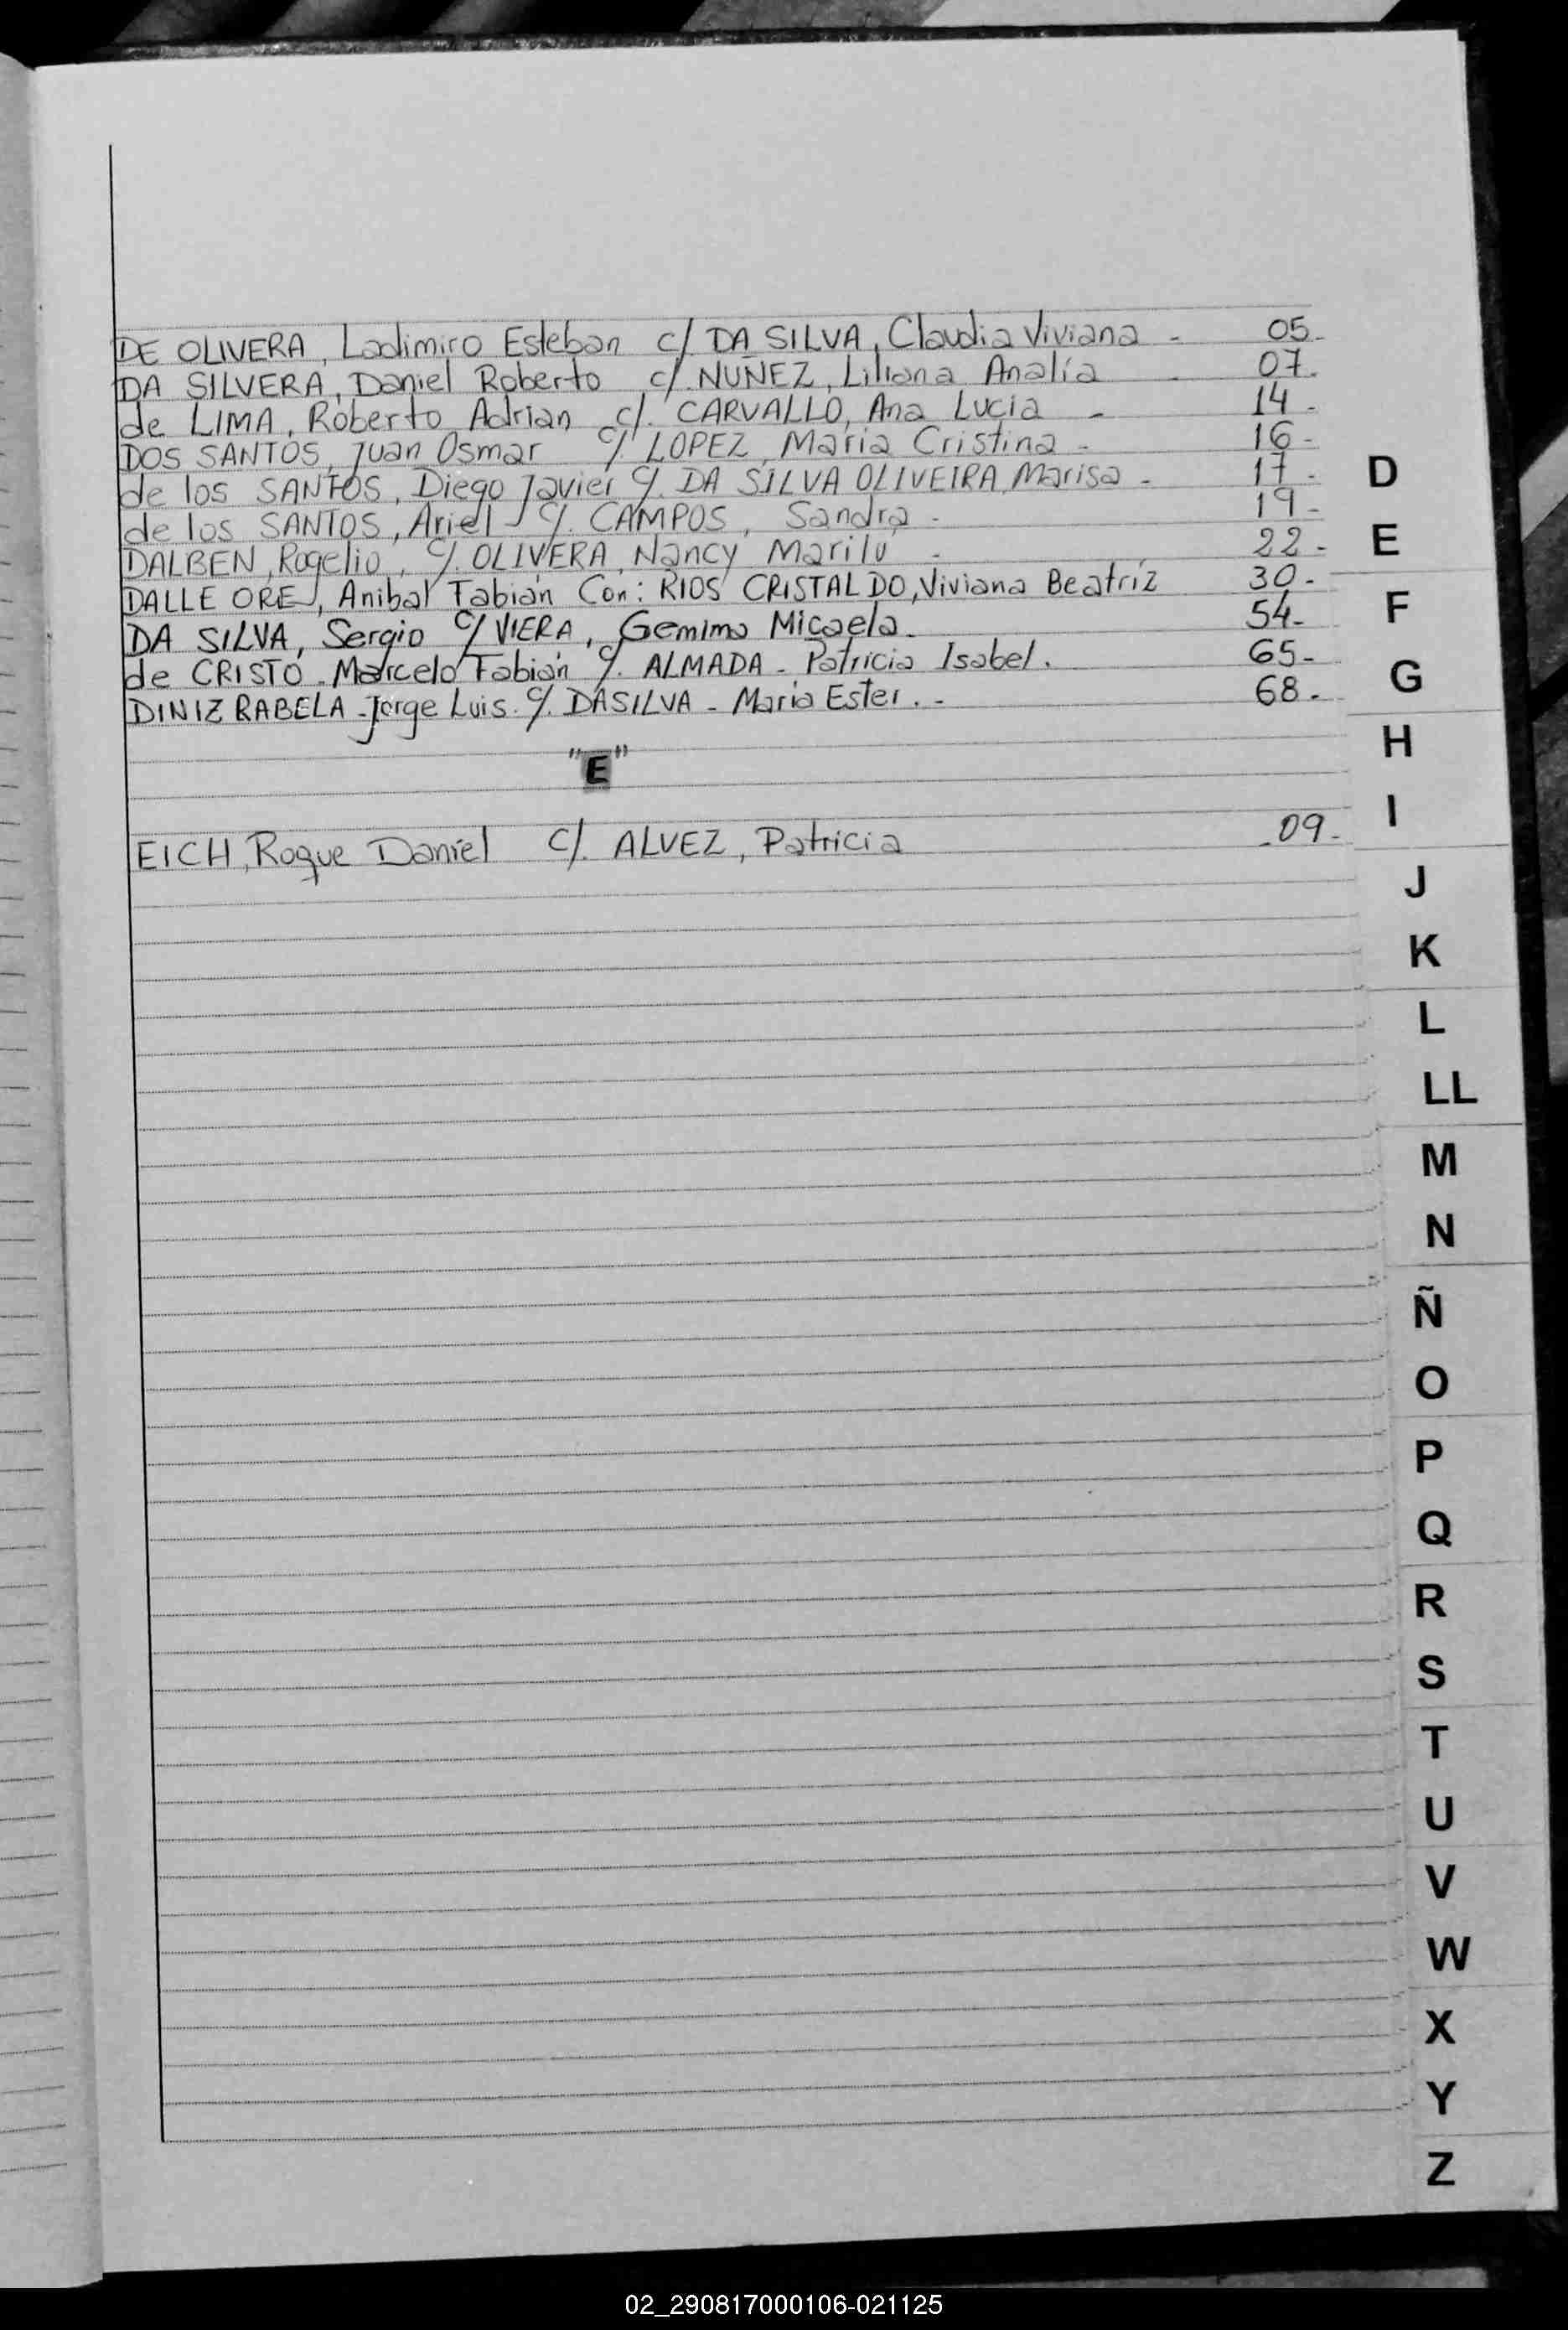 DE OLIVERA, Ladimiro Esteban c/ DA SILVA, Claudia Viviana - 05-
DA SILVERA, Daniel Roberto c/. NUÑEZ, Liliana Analía - 07.
de LIMA, Roberto Adrian c/. CARVALLO, Ana Lucia - 14-
DOS SANTOS, Juan Osmar c/. LOPEZ, Maria Cristina - 16-
de los SANTOS, Diego Javier c/. DA SILVA OLIVEIRA, Marisa - 17-
de los SANTOS, Ariel c/. CAMPOS, Sandra - 19-
DALBEN, Rogelio, c/. OLIVERA, Nancy Marilu - 22-
DALLE ORE, Anibal Fabián Con: RIOS CRISTALDO, Viviana Beatríz 30-
DA SILVA, Sergio c/ VIERA, Gemima Micaela. 54-
de CRISTO - Marcelo Fabián c/. ALMADA - Patricia Isabel. 65-
DINIZ RABELA - Jorge Luis. c/. DASILVA - Maria Ester. - 68-
"E"
EICH, Roque Daniel c/. ALVEZ, Patricia 09-
D
E
F
G
H
I
J
K
L
LL
M
N
Ñ
O
P
Q
R
S
T
U
V
W
X
Y
Z
02_290817000106-021125